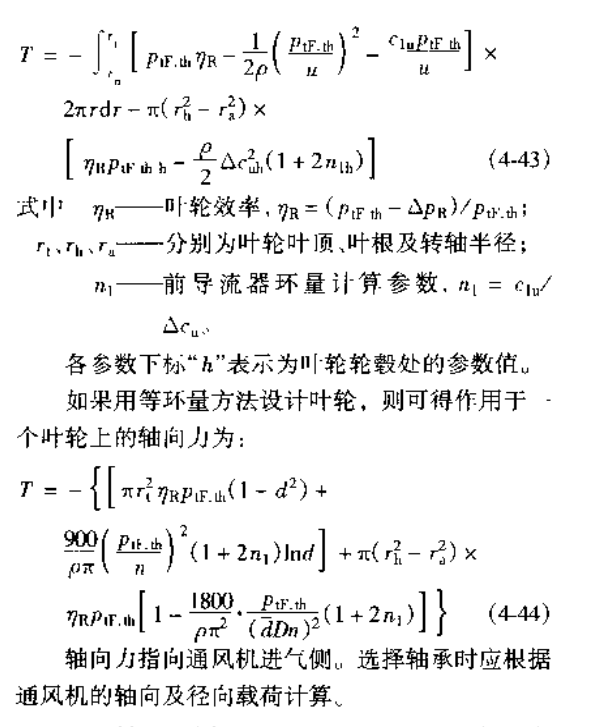 T = − ∫_{r_h}^{r_t} [ p_{tF.th} η_R − \frac{1}{2ρ} ( \frac{p_{tF.th}}{u} )^2 − \frac{c_{1u} p_{tF.th}}{u} ] ×
2πrdr − π( r_h^2 − r_a^2) ×
[ η_R p_{tF.th h} − \frac{ρ}{2} Δc_{uh}^2 (1 + 2n_{1h}) ] (4-43)
式中 η_R——叶轮效率, η_R = (p_{tF.th} − Δp_R)/p_{tF.th};
r_t、r_h、r_a——分别为叶轮叶顶、叶根及转轴半径;
n_1——前导流器环量计算参数, n_1 = c_{1u}/
Δc_u。
各参数下标“h”表示为叶轮轮毂处的参数值。
如果用等环量方法设计叶轮, 则可得作用于一
个叶轮上的轴向力为:
T = − { [ πr_t^2 η_R p_{tF.th} (1 − d^2) +
\frac{900}{ρπ} ( \frac{p_{tF.th}}{n} )^2 (1 + 2n_1)lnd ] + π( r_h^2 − r_a^2) ×
η_R p_{tF.th} [ 1 − \frac{1800}{ρπ^2} · \frac{p_{tF.th}}{(\bar{d}Dn)^2} (1 + 2n_1) ] } (4-44)
轴向力指向通风机进气侧。选择轴承时应根据
通风机的轴向及径向载荷计算。